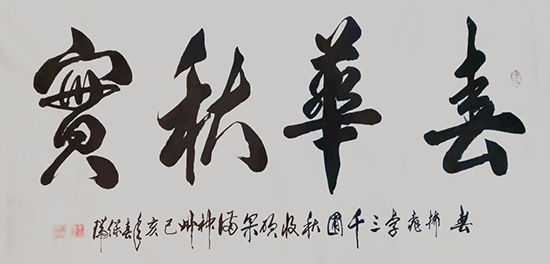 春華秋實
春播桃李三千圃秋收碩果滿神州己亥